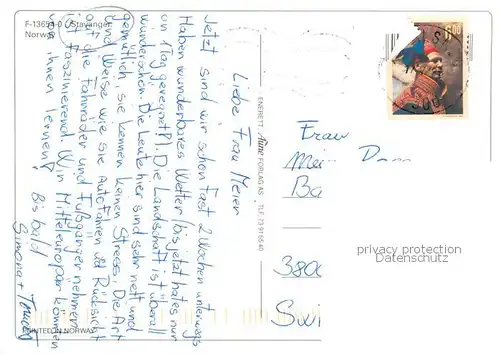 F-13694-0 Stavanger.
Norway
Liebe Frau Meier
Jetzt sind wir schon fast 2 Wochen unterwegs
Haben wunderbares Wetter (bis jetzt hat es nur
an 1 Tag geregnet!). Die Landschaft ist überall
wunderschön. Die Leute hier sind sehr nett und
gemütlich, sie kennen keinen Stress. Die Art
und Weise wie sie Autofahren und Rücksicht
auf die Fahrräder und Fußgänger nehmen
ist faszinierend. Wir Mitteleuropäer können
von ihnen lernen!
Bis bald
Simona +
ENERETT Aune FORLAG AS TLF. 73 91 65 40
Frau
Ba
380
Swi
privacy protection
Datenschutz